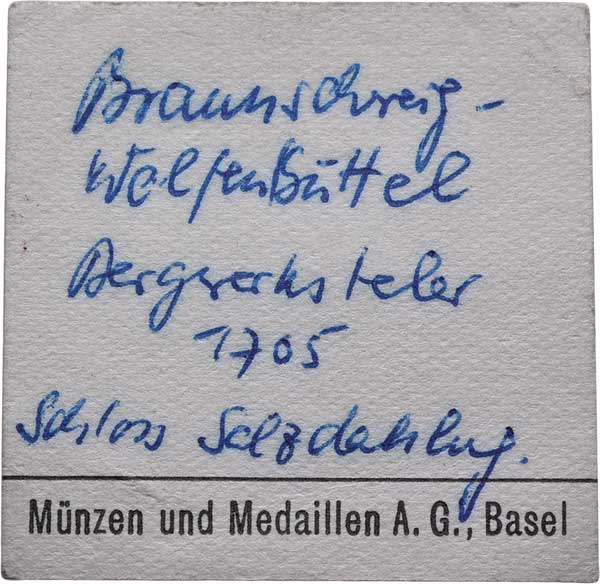 Braunschweig -
Wolfenbüttel
Bergwerkstaler
1705
Schloss Salzdahlug.
Münzen und Medaillen A. G., Basel